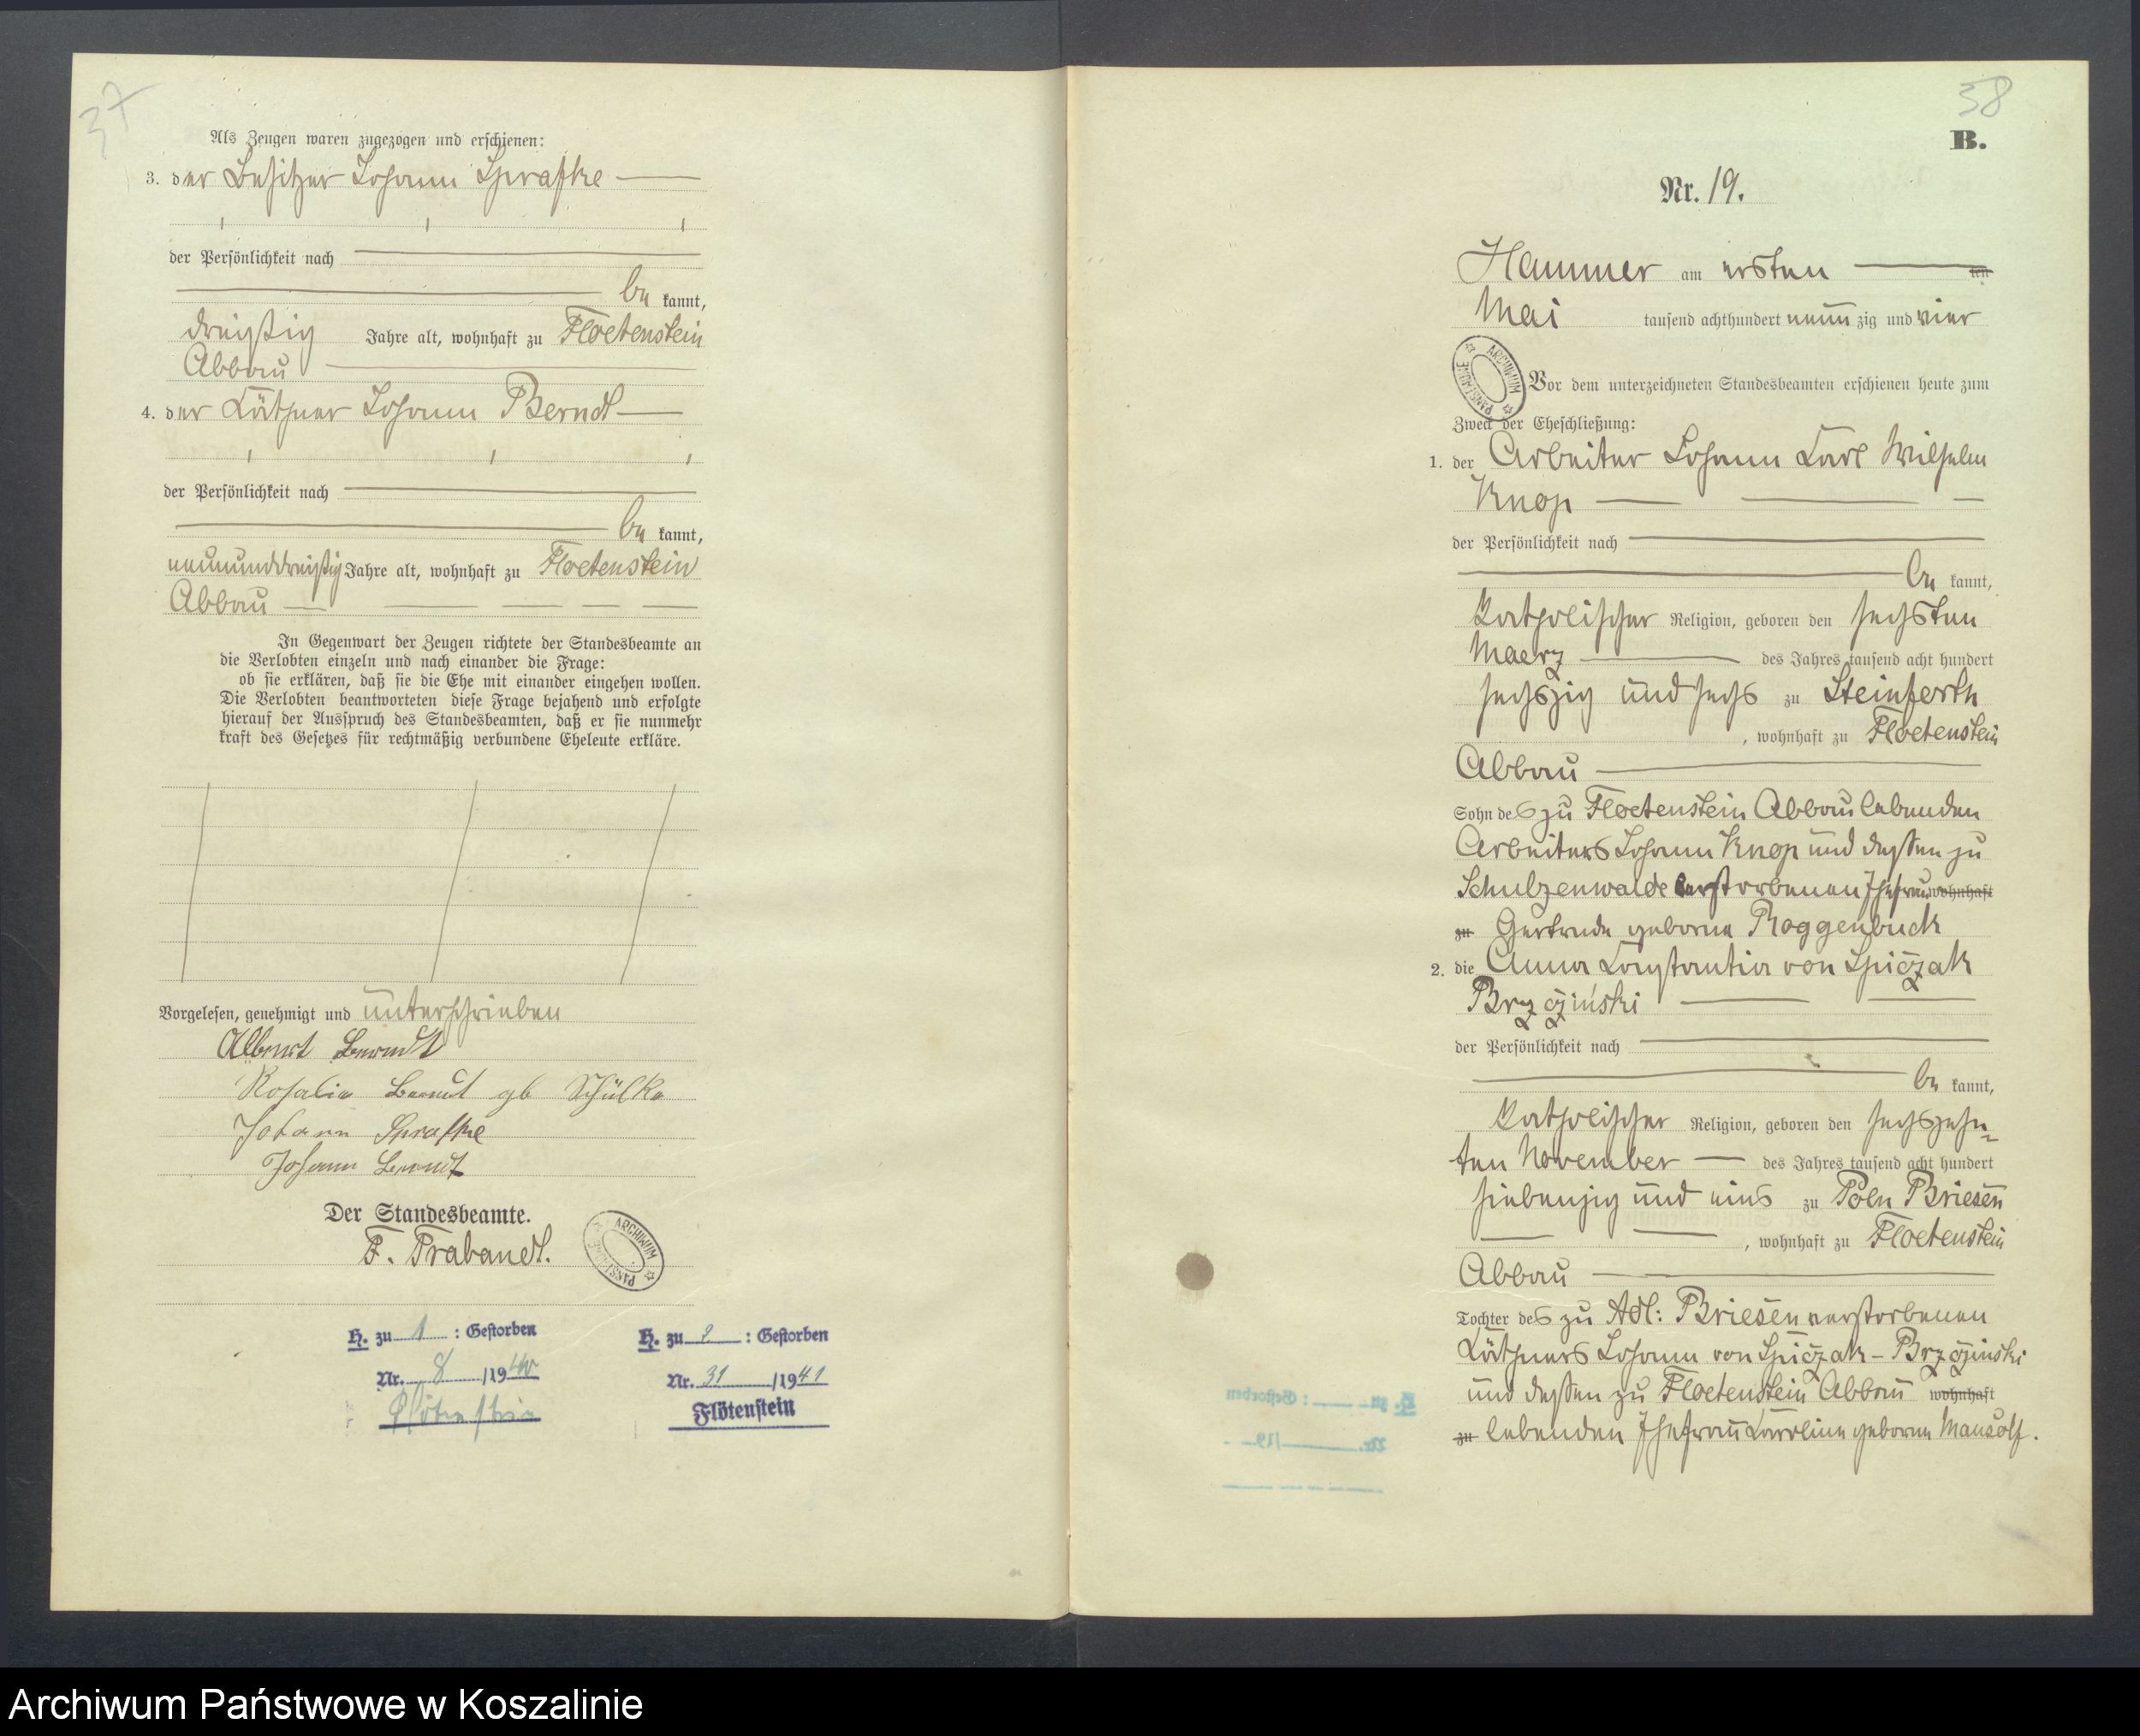 37
Als Zeugen waren zugezogen und erschienen:
3. der Besitzer Johann Sprafke
der Persönlichkeit nach
be kannt,
dreißig Jahre alt, wohnhaft zu Floetenstein
Abbau
4. der Käthner Johann Berndt
der Persönlichkeit nach
be kannt,
neununddreißig Jahre alt, wohnhaft zu Floetenstein
Abbau
In Gegenwart der Zeugen richtete der Standesbeamte an
die Verlobten einzeln und nach einander die Frage:
ob sie erklären, daß sie die Ehe mit einander eingehen wollen.
Die Verlobten beantworteten diese Frage bejahend und erfolgte
hierauf der Ausspruch des Standesbeamten, daß er sie nunmehr
kraft des Gesetzes für rechtmäßig verbundene Eheleute erkläre.
Vorgelesen, genehmigt und unterschrieben
Albert Berndt
Rosalie Berndt gb Schülke
Johann Sprafke
Johann Berndt
Der Standesbeamte.
F. Trabandt.
ARCHIWUM PAŃSTWOWE
H. zu 1 : Gestorben
Nr. 8 /1940
Flötenstein
H. zu 2 : Gestorben
Nr. 31 /1941
Flötenstein
38
B.
Nr. 19.
Hammer am ersten ten
Mai tausend achthundert neun zig und vier
ARCHIWUM PAŃSTWOWE
Vor dem unterzeichneten Standesbeamten erschienen heute zum
Zweck der Eheschließung:
1. der Arbeiter Johann Carl Wilhelm
Knop
der Persönlichkeit nach
be kannt,
katholischer Religion, geboren den sechsten
Maerz des Jahres tausend acht hundert
sechszig und sechs zu Steinforth
, wohnhaft zu Floetenstein
Abbau
Sohn des zu Floetenstein Abbau lebenden
Arbeiters Johann Knop und dessen zu
Schulzenwalde verstorbenen Ehefrau wohnhaft
zu Gertrude geborne Roggenbuck
2. die Anna Constantia von Spiczak
Brzezinski
der Persönlichkeit nach
be kannt,
katholischer Religion, geboren den sechszehn-
ten November des Jahres tausend acht hundert
siebenzig und eins zu Poln Briesen
, wohnhaft zu Floetenstein
Abbau
Tochter des zu Adl: Briesen verstorbenen
Käthners Johann von Spiczak-Brzezinski
und dessen zu Floetenstein Abbau wohnhaft
zu lebenden Ehefrau Caroline geborne Mausolf.
Archiwum Państwowe w Koszalinie